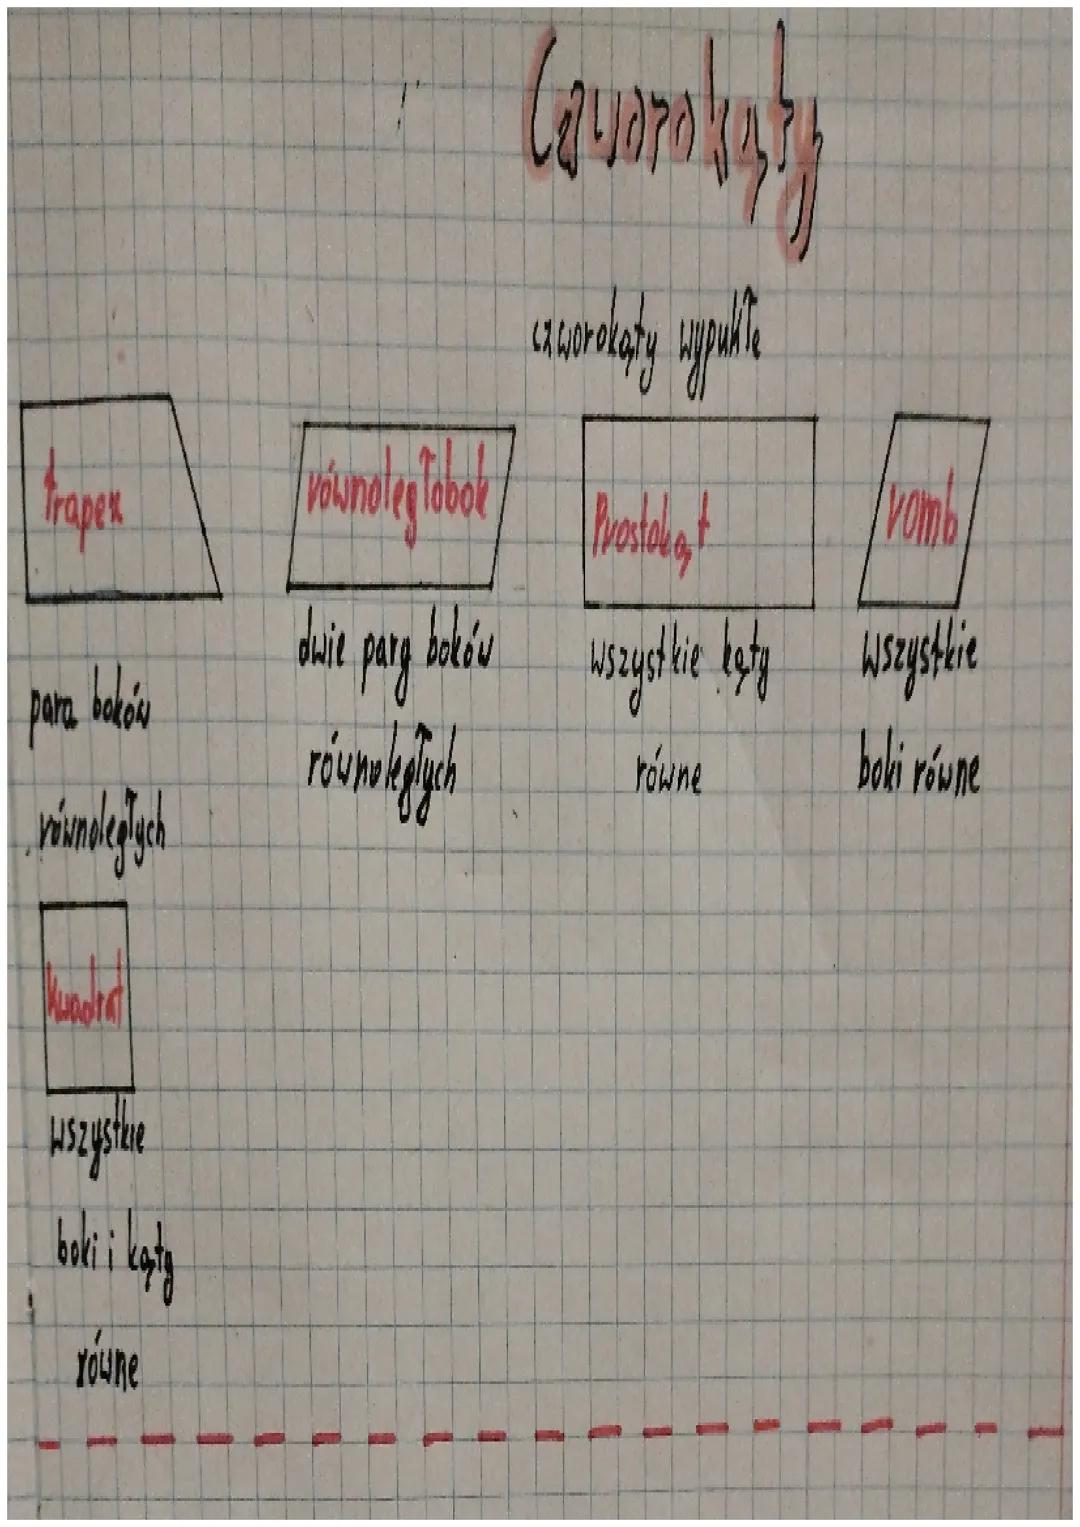 Czworokąty
czworokąty wypukłe
trapez
równoległobok
Prostokąt
romb
para boków
równoległych
dwie pary boków
równoległych
wszystkie kąty
równe
wszystkie
boki równe
kwadrat
wszystkie
boki i kąty
równe